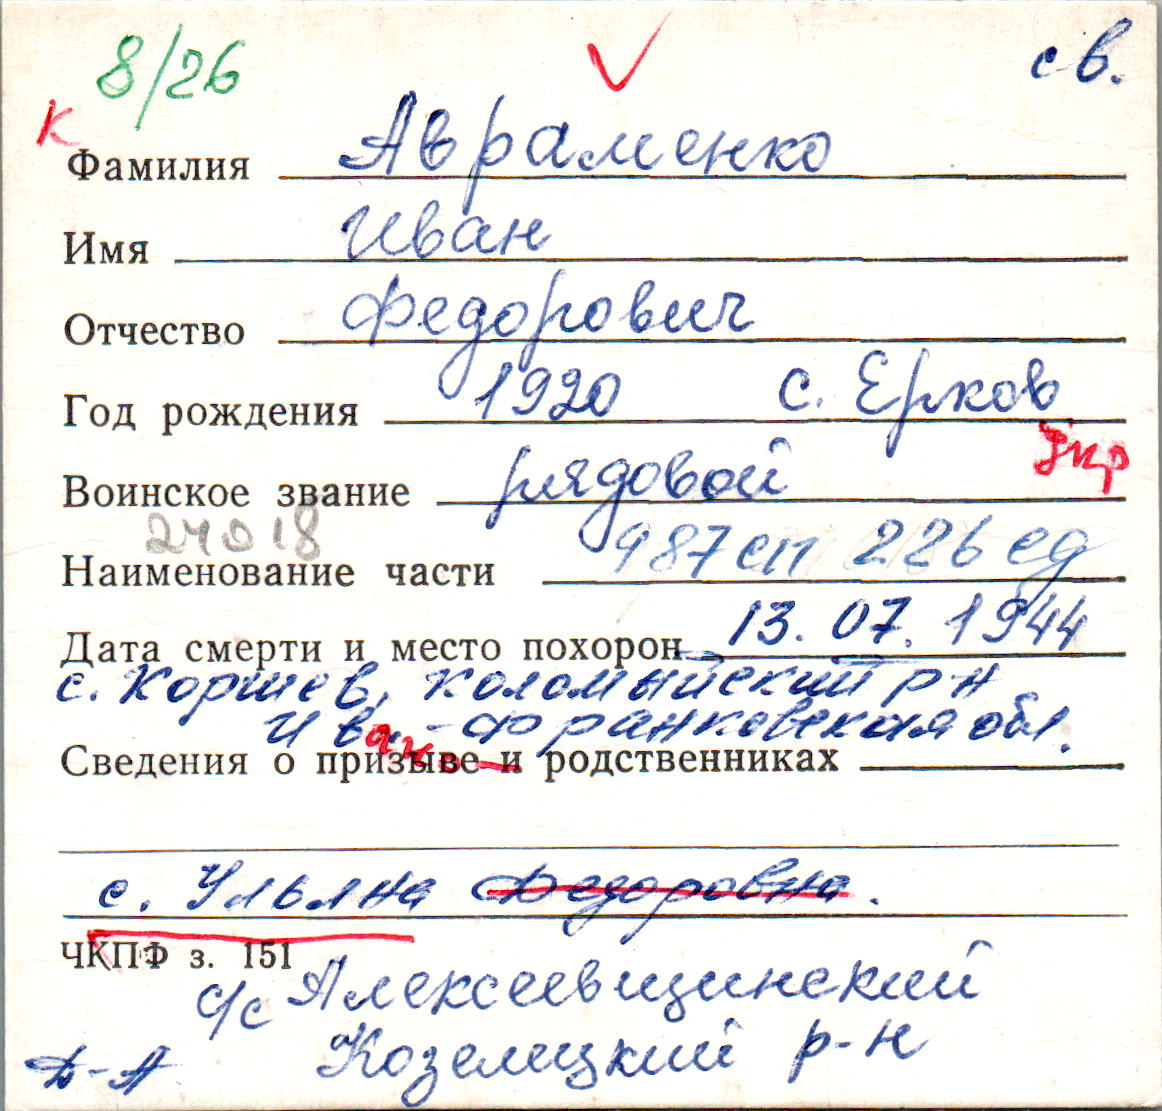 8/26 св.
к
Фамилия Авраменко
Имя Иван
Отчество Федорович
Год рождения 1920 с. Ерков
Укр
Воинское звание рядовой
24018
Наименование части 987 сп 226 сд
Дата смерти и место похорон 13.07.1944
с. Коршев, Коломыйский р-н
Ив.-Франковская обл.
Сведения о призыве и родственниках
с. Ульяна Федоровна.
ЧКПФ з. 151
с/с Алексеевщинский
Козелецкий р-н
Д-А